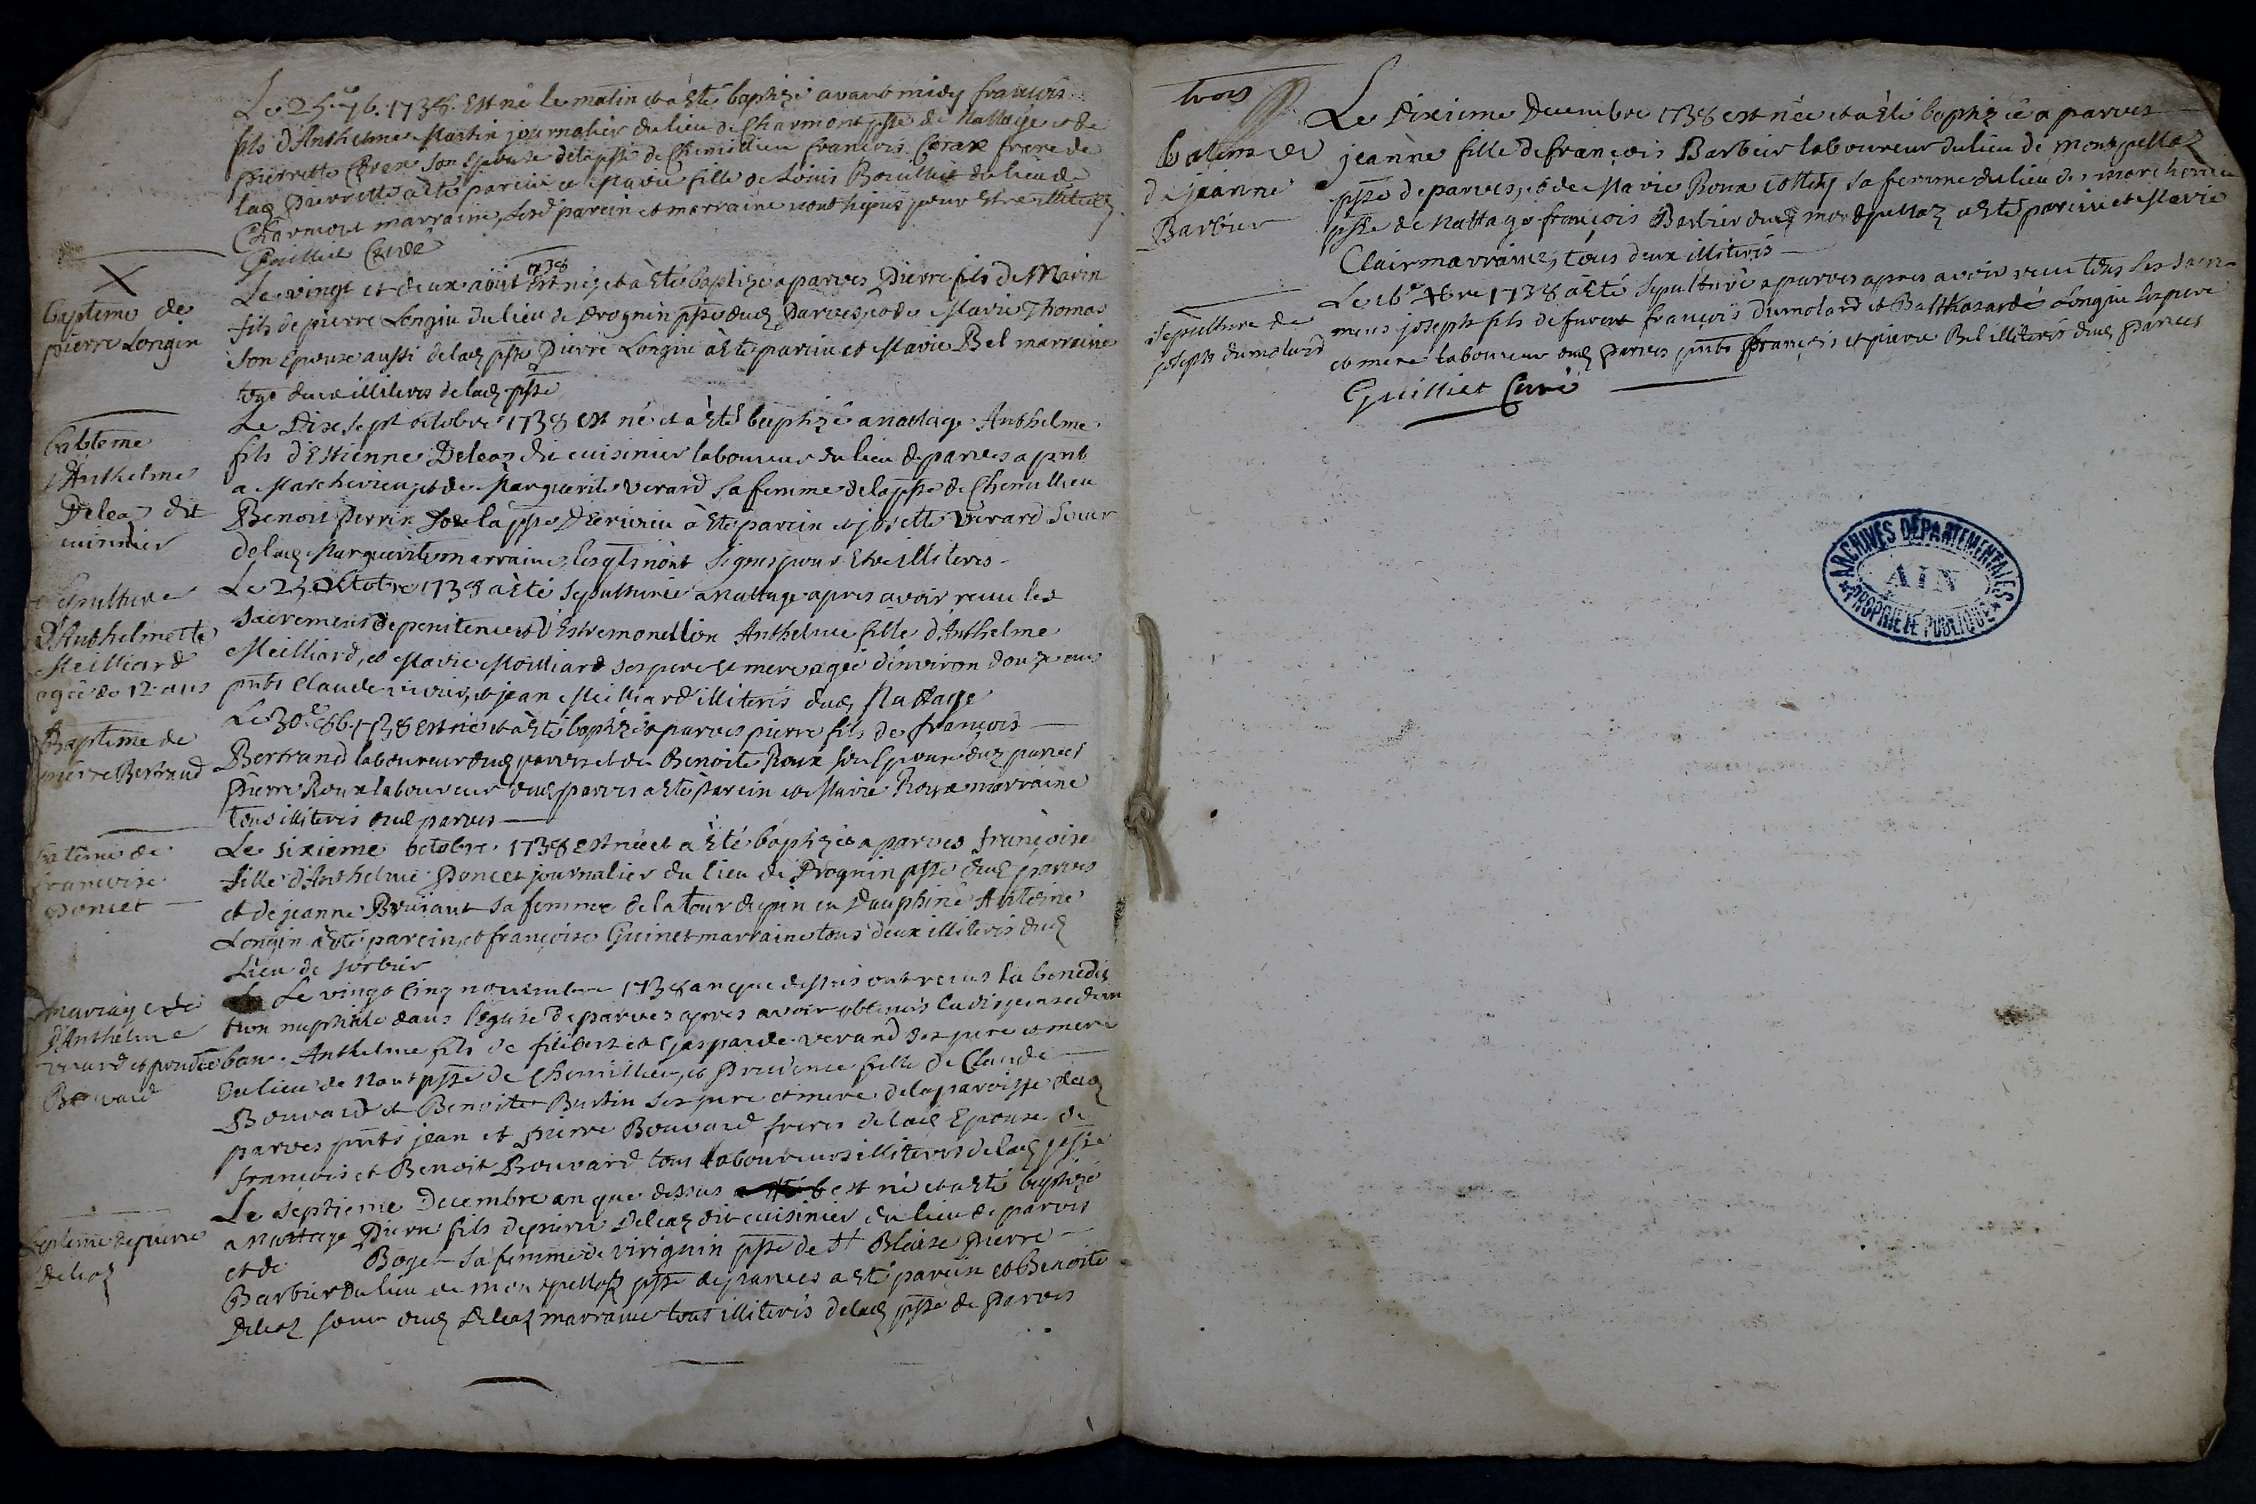 Le 25e 7b. 1738 est né le matin et a Eté baptizé avant midy francois
fils d'Anthelme Martin journalier du lieu de Charmont psse de Nattage et de
pierrette Corax son Epouse de la psse de Chemillieu francois Corax frere de
lad pierrette a Eté parein et Marie fille de Louis Bouillet du lieu de
Charmont marraine, lesd parein et marraine n'ont signés pour Estre illiterés
Guilliet Curé
X
bapteme de
pierre Longin
Le vingt et deux aoust 1738 est né et a Eté baptizé a parves Pierre fils de Marin
fils de pierre Longin du lieu de Brognin psse dud Parves, et de Marie Thomas
son Epouse aussi de lad psse Pierre Longin a Eté parein et Marie Bel marraine
tous deux illiteres de lad psse
babteme
d'Anthelme
Deleaz dit
cuisinier
Le Dix sept octobre 1738 est né et a Eté baptizé a nattage Anthelme
fils d'Estienne Deleaz dit cuisinier laboureur du lieu de parves a pnt
a Marchevieu, et de Marguerite verard sa femme de la psse de Chemillieu
Benoit Perrin de la psse a Eté parein et josette verard soeur
de lad Marguerite marraine, lesqls n'ont signes pour Etre illiteres
Sepulture
D'Anthelmette
Meilliard
agée de 12 ans
Le 25 octobre 1738 a Eté sepulturée a Nattage apres avoir receu les
sacremens de penitence et d'Extremonction Anthelme fille d'Anthelme
Meilliard, et Marie Moilliard ses pere et mere agée d'environ douze ans
pnts Claude et jean Meilliard illiteris dud Nattage
Bapteme de
pierre Bertrand
Le 30e 8b. 1738 est né et a Eté baptizé a parves pierre fils de francois
Bertrand laboureur dud parves et de Benoite Roux son Epouse dud parves
Pierre Roux laboureur dud parves a Eté parein et Marie Roux marraine
tous illiteris dud parves
bateme de
francoise
poncet
Le sixieme octobre 1738 est née et a Eté baptizée a parves françoise
fille d'Anthelme Poncet journalier du lieu de Brognin psse dud parves
et de jeanne Bruiant sa femme de la tour du pin en Dauphiné Antoine
Longin a Eté parein, et françoise Guinet marraine tous deux illiteris dud
Lieu de sorbier
mariage de
D'Anthelme
verard et prudence
Bouvard
Le vingt cinq novembre 1738 an que dessus ont receus la benedic
tion nuptiale dans l'eglise de parves apres avoir obtenus la dispense d'un
ban. Anthelme fils de filibert et Gasparde verand ses pere et mere
du lieu de Nant psse de Chemillieu, et Prudence fille de Claude
Bouvard et Benoite Burtin ses pere et mere de la paroisse dud
parves pnts jean et pierre Bouvard freres de lad Epouse de
francois et Benoit Bouvard tous laboureurs illiteris de lad psse
bapteme de pierre
Deleaz
Le septieme Decembre an que dessus est né et a Eté baptizé
a Nattage Pierre fils de pierre Deleaz dit cuisinier du lieu de parves
et de Boget sa femme de virignin psse de St Blaise Pierre
Barbier du lieu de montpellaz psse de parves a Eté parein et Benoite
Deleaz soeur dud Deleaz marraine tous illiteris de lad psse de Parves
trois
bateme de
de jeanne
Barbier
Le Dixieme Decembre 1738 est née et a Eté baptizée a parves
jeanne fille de françois Barbier laboureur du lieu de montpellaz
psse de parves, et de Marie Roux Collet sa femme du lieu de marchevieu
psse de Nattage françois Barbier dud montpellaz a Eté parein et Marie
Clair marraine, tous deux illiteris
Sepulture de
joseph dumolard
Le 16e Xbre 1738 a Eté sepulturé a parves apres avoir receu tous ses sacre
mens joseph fils de fuvent françois dumolard et Balthazarde Longin ses pere
et mere laboureur dud parves pnts françois et pierre Bel illiteris dud parves
Guilliet Curé
ARCHIVES DÉPARTEMENTALES
AIN
PROPRIÉTÉ PUBLIQUE